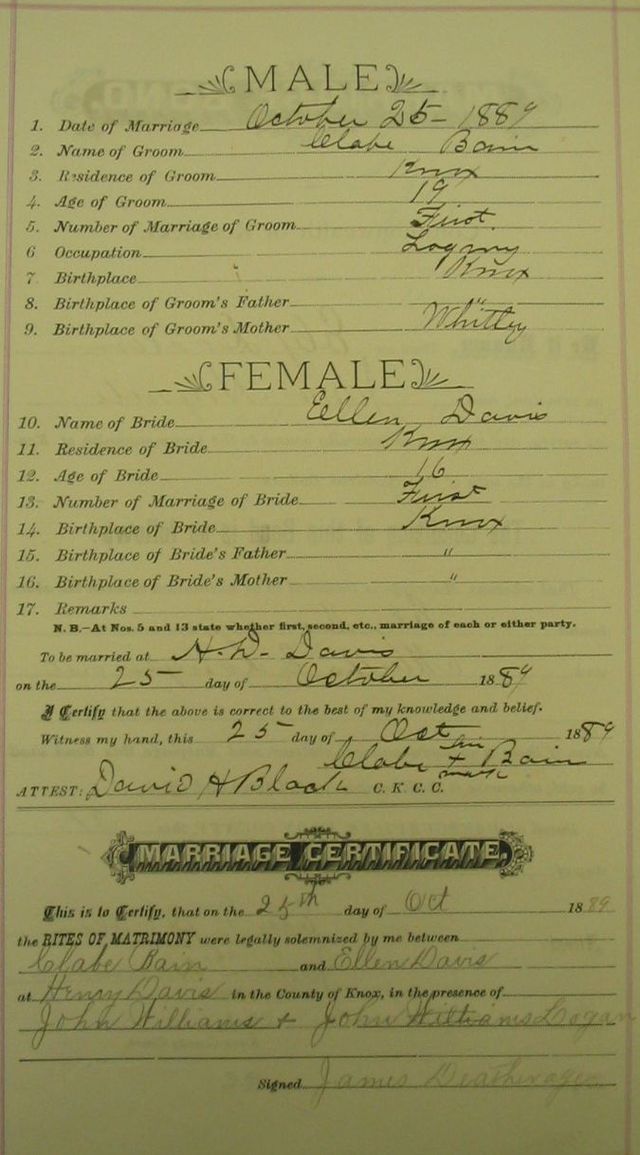 MALE
1. Date of Marriage October 25 - 1889
2. Name of Groom Clabe Bain
3. Residence of Groom Knox
4. Age of Groom 19
5. Number of Marriage of Groom First.
6 Occupation
7 Birthplace Knox
8. Birthplace of Groom's Father "
9. Birthplace of Groom's Mother Whitley
FEMALE
10. Name of Bride Eellen Davis
11. Residence of Bride Knox
12. Age of Bride 16
13. Number of Marriage of Bride First
14. Birthplace of Bride Knox
15. Birthplace of Bride's Father "
16. Birthplace of Bride's Mother "
17. Remarks
N. B.—At Nos. 5 and 13 state whether first, second, etc., marriage of each or either party.
To be married at H. D- Davis
on the 25 day of October 1889
I Certify that the above is correct to the best of my knowledge and belief.
Witness my hand, this 25 day of Oct 1889
Clabe his + mark Bain
ATTEST: David H Black C. K. C. C.
MARRIAGE CERTIFICATE.
This is to Certify, that on the 25th day of Oct 1889
the RITES OF MATRIMONY were legally solemnized by me between
Clabe Bain and Ellen Davis
at Henry Davis in the County of Knox, in the presence of
John Williams + John Williams Logan
Signed James Deatherage